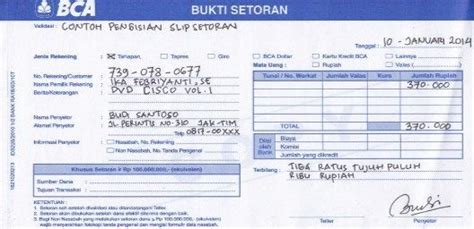 BCA
BUKTI SETORAN
Validasi : CONTOH PENGISIAN SLIP SETORAN
Tanggal : 10 - JANUARI 2014
Jenis Rekening : Tahapan Tapres Giro
BCA Dollar Kartu Kredit BCA Lainnya
Mata Uang : Rupiah Valas
No. Rekening/Customer : 739-078-0677
Nama Pemilik Rekening : IKA FEBRIYANTI, SE
Berita/Keterangan : DVD CISCO VOL.1
Tunai / No. Warkat Jumlah Valas Kurs Jumlah Rupiah
370.000
Nama Penyetor : BUDI SANTOSO
Alamat Penyetor : JL. PERINTIS NO.310 JAK-TIM
Telp 0817-00XXX
Informasi Penyetor : Nasabah, No. Rek.
Non Nasabah, No. Tanda Pengenal
TOTAL 370.000
Diisi oleh Bank
Biaya
Komisi
Jumlah yang dikredit
Khusus Setoran ≥ Rp 100,000,000,- (ekuivalen)
Sumber Dana :
Tujuan Transaksi :
Terbilang : TIGA RATUS TUJUH PULUH
RIBU RUPIAH
KETENTUAN :
Teller
Penyetor